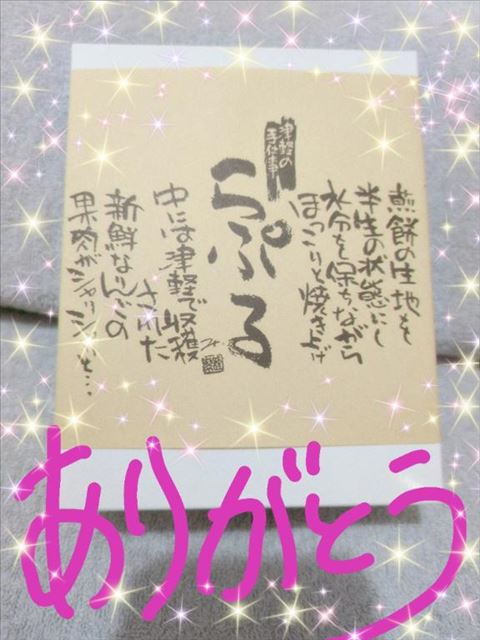 煎餅の生地を
半生の状態にし
水分を保ちながら
ほっこりと焼き上げ
津軽の
手仕事
らぷる
中には津軽で収穫
された
新鮮なりんごの
果肉がシャリシャリと…
ありがとう